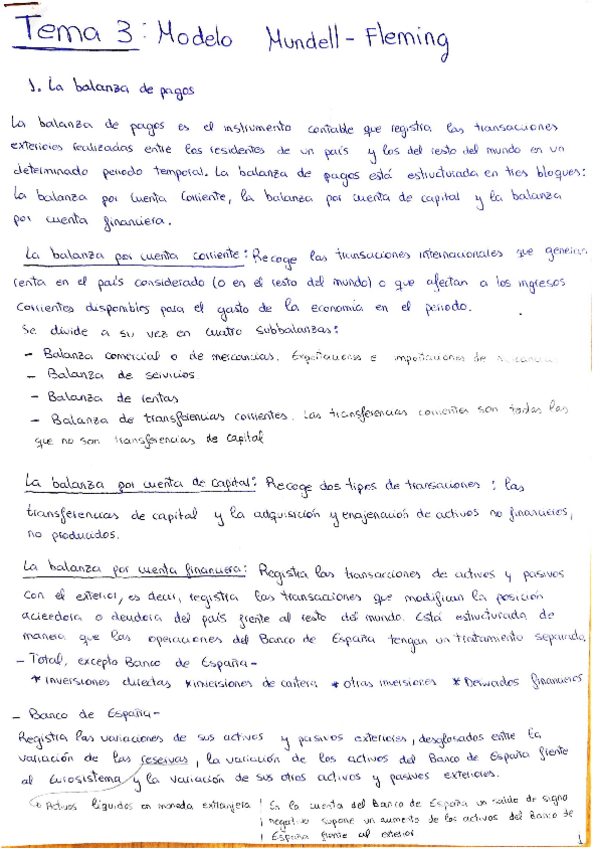 Tema 3: Modelo Mundell - Fleming
1. La balanza de pagos
La balanza de pagos es el instrumento contable que registra las transacciones
exteriores realizadas entre los residentes de un país y los del resto del mundo en un
determinado periodo temporal. La balanza de pagos está estructurada en tres bloques:
la balanza por cuenta corriente, la balanza por cuenta de capital y la balanza
por cuenta financiera.
La balanza por cuenta corriente: Recoge las transaciones internacionales que generan
renta en el país considerado (o en el resto del mundo) o que afectan a los ingresos
corrientes disponibles para el gasto de la economía en el periodo.
Se divide a su vez en cuatro subbalanzas:
- Balanza comercial o de mercancías. Exportaciones e importaciones de
- Balanza de servicios
- Balanza de rentas
- Balanza de transferencias corrientes. Las transferencias corrientes son todas las
que no son transferencias de capital
La balanza por cuenta de capital: Recoge dos tipos de transaciones: las
transferencias de capital y la adquisición y enajenación de activos no financieros,
no producidos.
La balanza por cuenta financiera: Registra las transacciones de activos y pasivos
con el exterior, es decir, registra las transacciones que modifican la posición
acreedora o deudora del país frente al resto del mundo. Está estructurada de
manera que las operaciones del Banco de España tengan un tratamiento separado.
- Total, excepto Banco de España -
* Inversiones directas * inversiones de cartera * otras inversiones * Derivados financieros
- Banco de España -
Registra las variaciones de sus activos y pasivos exteriores, desglosados entre la
variación de las reservas, la variación de los activos del Banco de España frente
al Eurosistema y la variación de sus otros activos y pasivos exteriores.
Activos líquidos en moneda extranjera
En la cuenta del Banco de España un saldo de signo
negativo supone un aumento de los activos del Banco de
España frente al exterior
1